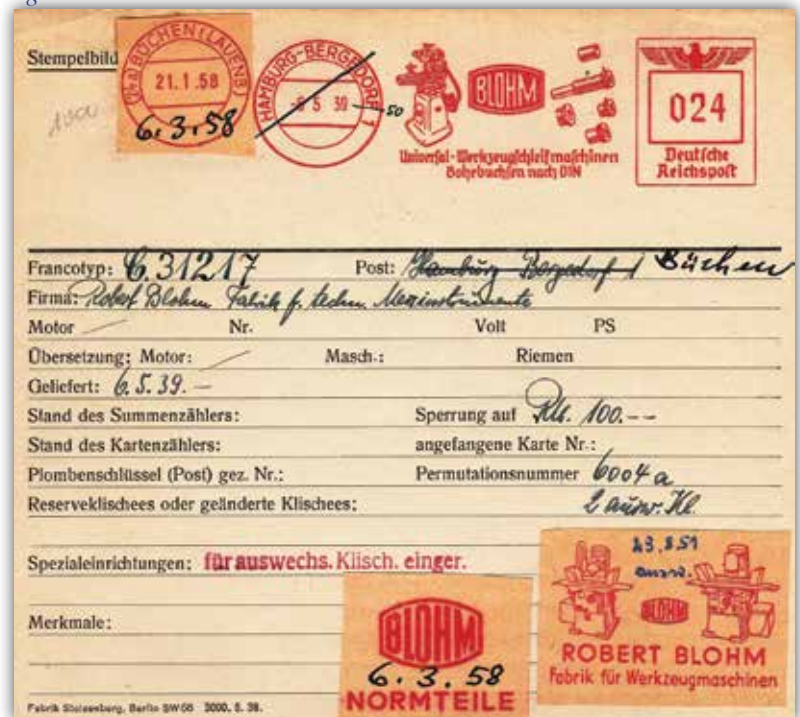 Stempelbild
(24a) BÜCHEN (LAUENB)
21.1.58
6.3.58
HAMBURG-BERGEDORF 1
-6 5 39 - 50
BLOHM
Universal-Werkzeugschleifmaschinen
Bohrbuchsen nach DIN
024
Deutsche
Reichspost
Francotyp: C. 31217 Post: Hamburg Bergedorf 1 Büchen
Firma: Robert Blohm Fabrik f. techn. Messinstrumente
Motor Nr. Volt PS
Übersetzung: Motor: Masch.: Riemen
Geliefert: 6.5.39.—
Stand des Summenzählers: Sperrung auf 100.--
Stand des Kartenzählers: angefangene Karte Nr.:
Plombenschlüssel (Post) gez. Nr.: Permutationsnummer 6004 a
Reserveklischees oder geänderte Klischees: 2 ausw. Kl.
Spezialeinrichtungen: für auswechs. Klisch. einger.
Merkmale:
BLOHM
6.3.58
NORMTEILE
23.8.51
ausw.
BLOHM
ROBERT BLOHM
Fabrik für Werkzeugmaschinen
Fabrik Stolzenberg, Berlin SW 68 3000. 5. 38.